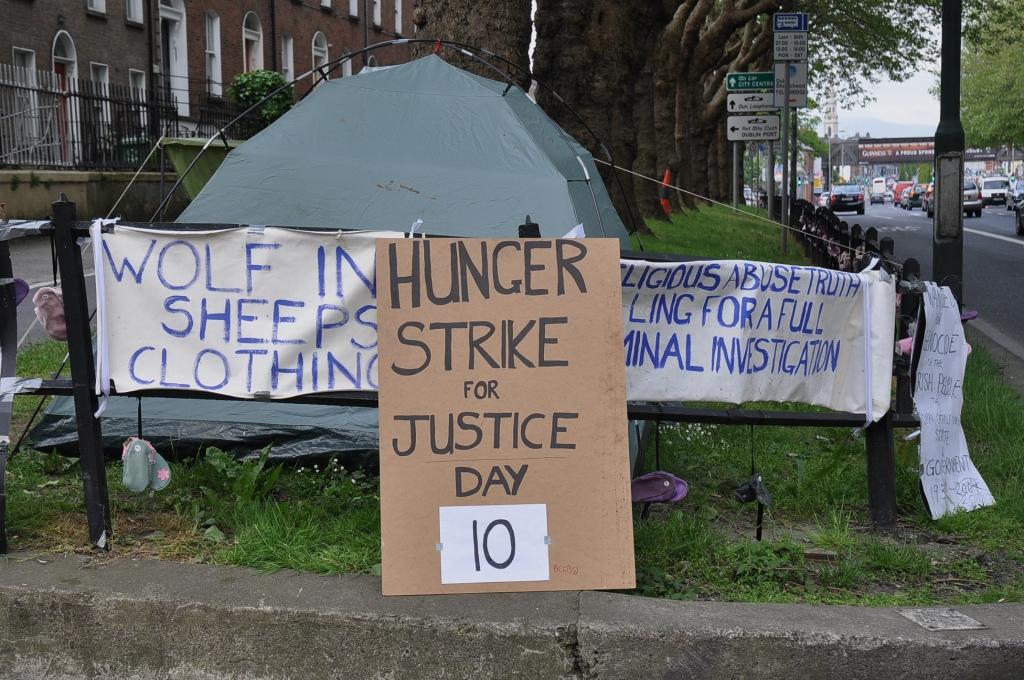 WOLF IN
SHEEPS
CLOTHING
HUNGER
STRIKE
FOR
JUSTICE
DAY
10
LIGIOUS ABUSE TRUTH
LING FOR A FULL
MINAL INVESTIGATION
An Lár
CITY CENTRE
Dun Laoghaire
DUBLIN PORT
GUINNESS A PROUD
GENOCIDE
OF THE
IRISH PEOPLE
STATE
GOVERNMENT